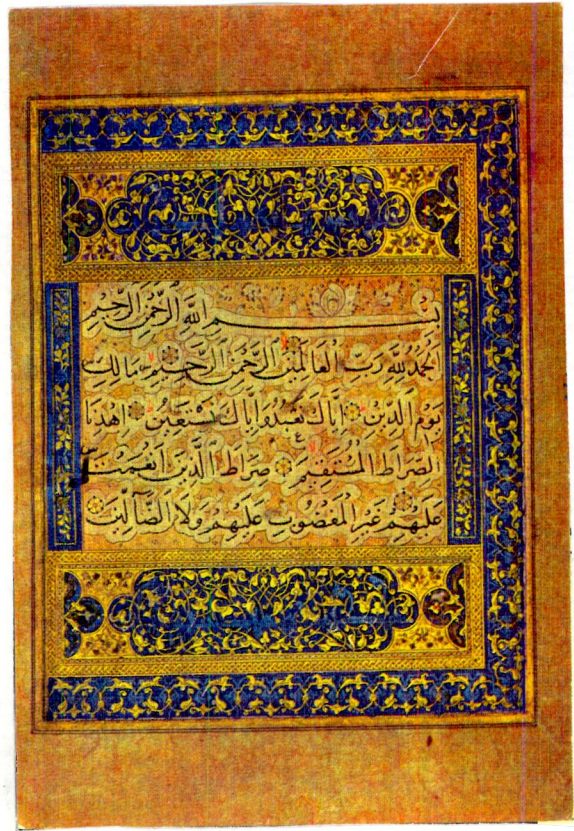 بِسْمِ اللَّهِ الرَّحْمَنِ الرَّحِيمِ
الْحَمْدُ لِلَّهِ رَبِّ الْعَالَمِينَ الرَّحْمَنِ الرَّحِيمِ مَالِكِ
يَوْمِ الدِّينِ إِيَّاكَ نَعْبُدُ وَإِيَّاكَ نَسْتَعِينُ اهْدِنَا
الصِّرَاطَ الْمُسْتَقِيمَ صِرَاطَ الَّذِينَ أَنْعَمْتَ
عَلَيْهِمْ غَيْرِ الْمَغْضُوبِ عَلَيْهِمْ وَلَا الضَّالِّينَ